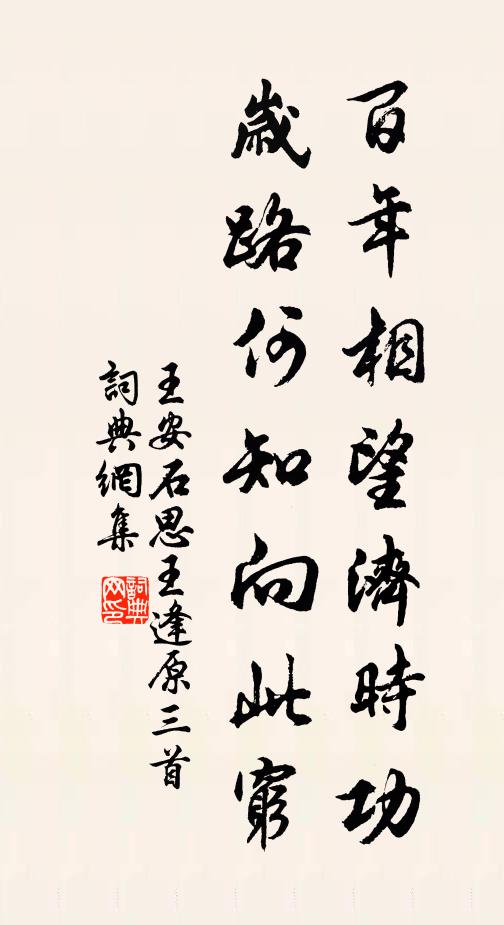 百年相望濟時功
歲路何知向此窮
王安石思王逢原三首
詞典網集
詞典网印